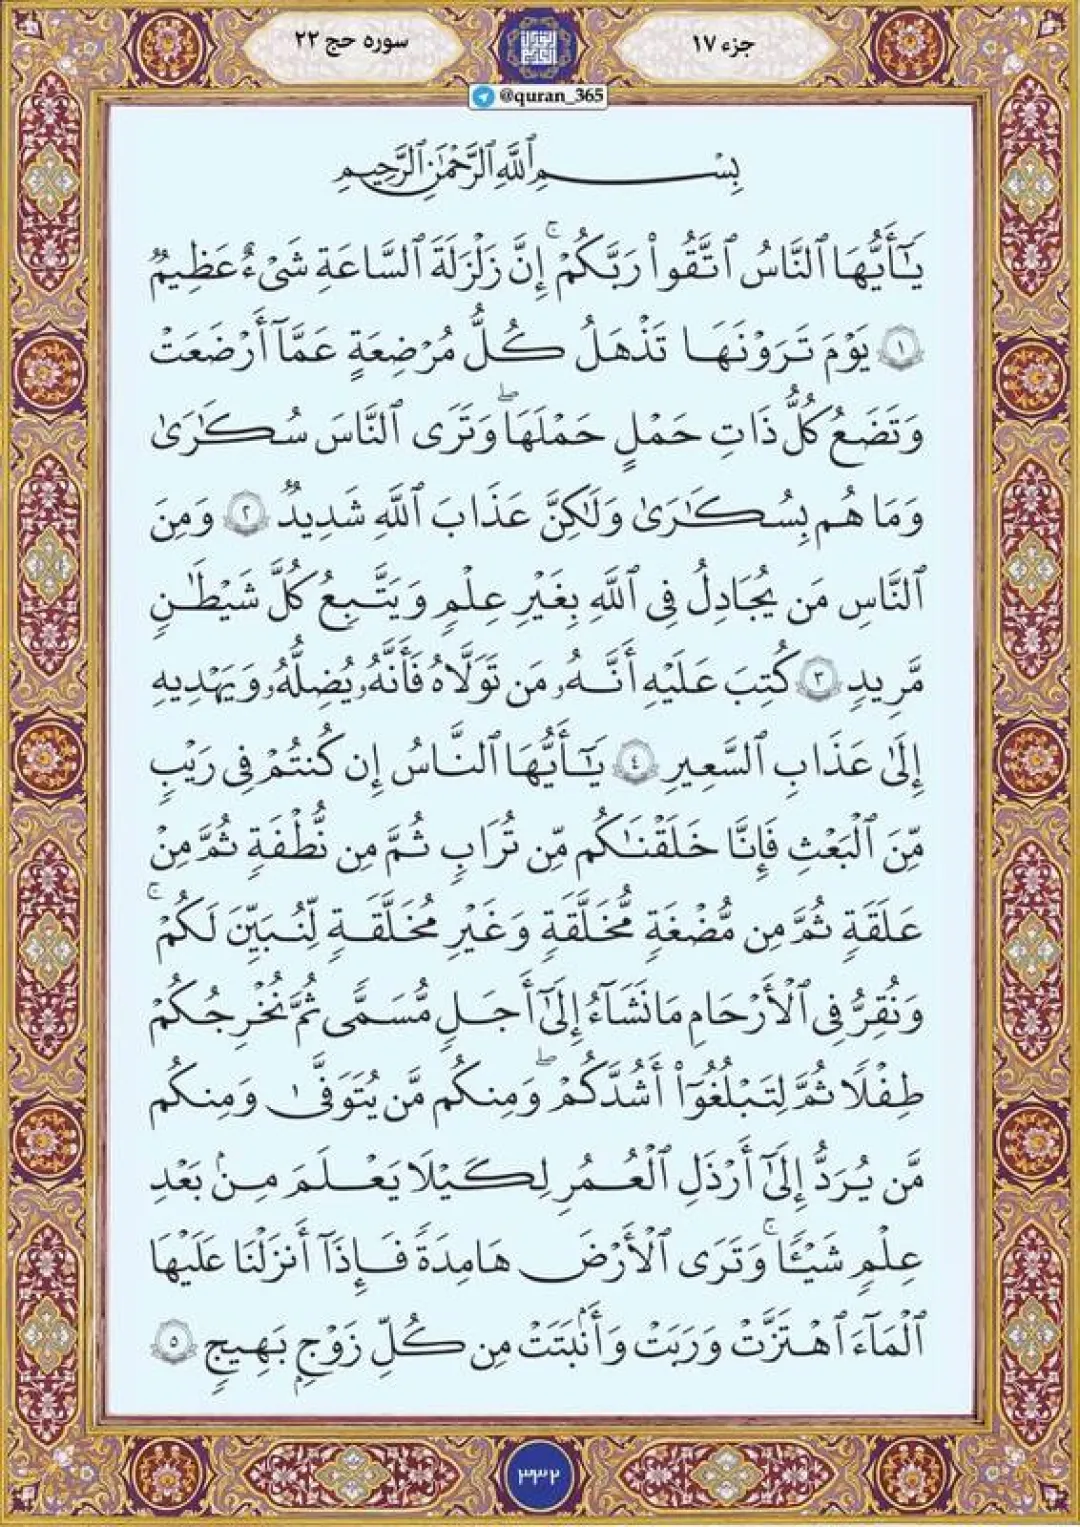 جزء ۱۷
سوره حج ۲۲
@quran_365
بِسْمِ ٱللَّهِ ٱلرَّحْمَٰنِ ٱلرَّحِيمِ
يَٰٓأَيُّهَا ٱلنَّاسُ ٱتَّقُوا۟ رَبَّكُمْ ۚ إِنَّ زَلْزَلَةَ ٱلسَّاعَةِ شَىْءٌ عَظِيمٌ
١ يَوْمَ تَرَوْنَهَا تَذْهَلُ كُلُّ مُرْضِعَةٍ عَمَّآ أَرْضَعَتْ
وَتَضَعُ كُلُّ ذَاتِ حَمْلٍ حَمْلَهَا ۖ وَتَرَى ٱلنَّاسَ سُكَٰرَىٰ
وَمَا هُم بِسُكَٰرَىٰ وَلَٰكِنَّ عَذَابَ ٱللَّهِ شَدِيدٌ ٢ وَمِنَ
ٱلنَّاسِ مَن يُجَٰدِلُ فِى ٱللَّهِ بِغَيْرِ عِلْمٍ وَيَتَّبِعُ كُلَّ شَيْطَٰنٍ
مَّرِيدٍ ٣ كُتِبَ عَلَيْهِ أَنَّهُۥ مَن تَوَلَّاهُ فَأَنَّهُۥ يُضِلُّهُۥ وَيَهْدِيهِ
إِلَىٰ عَذَابِ ٱلسَّعِيرِ ٤ يَٰٓأَيُّهَا ٱلنَّاسُ إِن كُنتُمْ فِى رَيْبٍ
مِّنَ ٱلْبَعْثِ فَإِنَّا خَلَقْنَٰكُم مِّن تُرَابٍ ثُمَّ مِن نُّطْفَةٍ ثُمَّ مِنْ
عَلَقَةٍ ثُمَّ مِن مُّضْغَةٍ مُّخَلَّقَةٍ وَغَيْرِ مُخَلَّقَةٍ لِّنُبَيِّنَ لَكُمْ ۚ
وَنُقِرُّ فِى ٱلْأَرْحَامِ مَا نَشَآءُ إِلَىٰٓ أَجَلٍ مُّسَمًّى ثُمَّ نُخْرِجُكُمْ
طِفْلًا ثُمَّ لِتَبْلُغُوٓا۟ أَشُدَّكُمْ ۖ وَمِنكُم مَّن يُتَوَفَّىٰ وَمِنكُم
مَّن يُرَدُّ إِلَىٰٓ أَرْذَلِ ٱلْعُمُرِ لِكَيْلَا يَعْلَمَ مِنۢ بَعْدِ
عِلْمٍ شَيْـًٔا ۚ وَتَرَى ٱلْأَرْضَ هَامِدَةً فَإِذَآ أَنزَلْنَا عَلَيْهَا
ٱلْمَآءَ ٱهْتَزَّتْ وَرَبَتْ وَأَنۢبَتَتْ مِن كُلِّ زَوْجٍۭ بَهِيجٍ ٥
٣٣٢